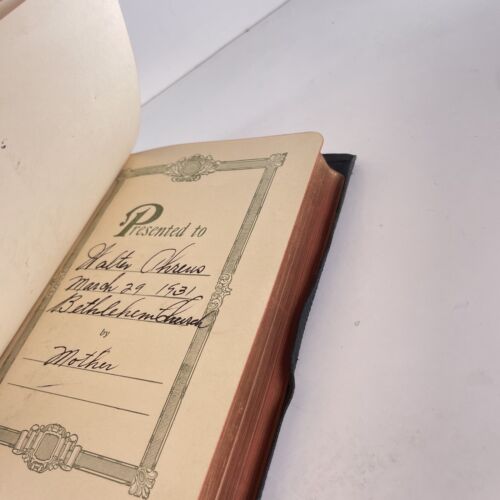 Presented to
Walter Ahrens
March 29 1931
Bethlehem Church
by
Mother